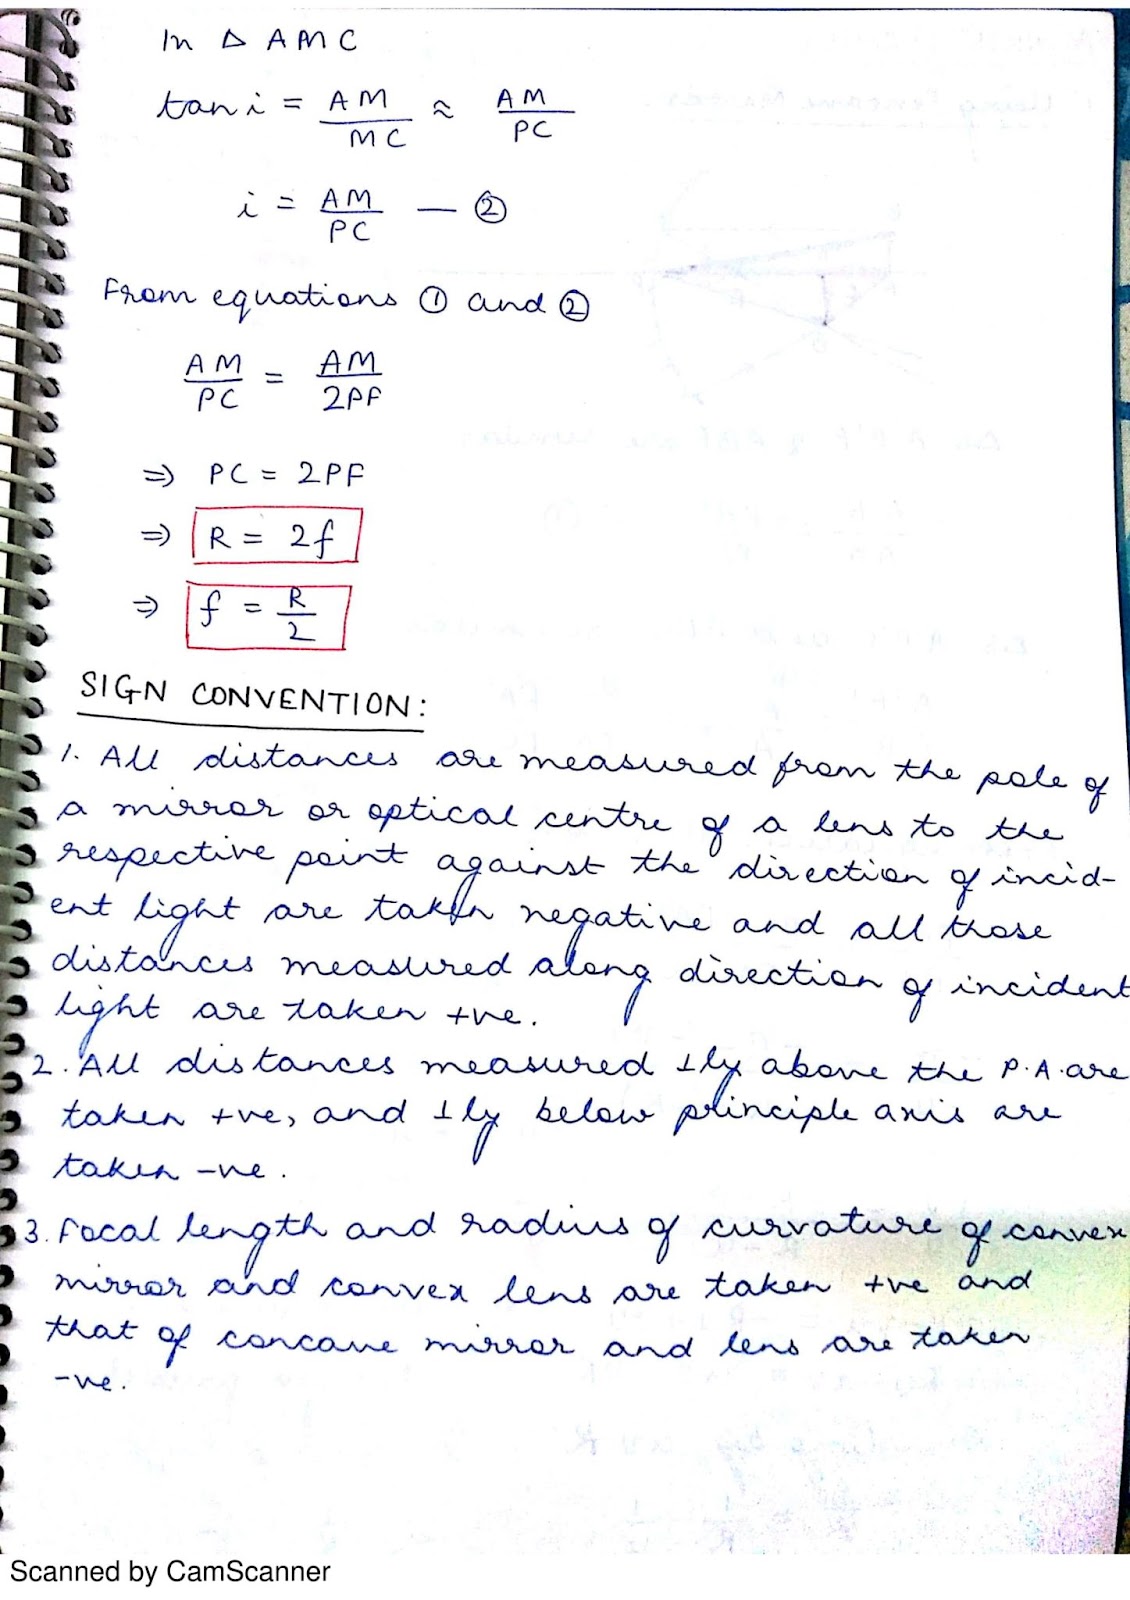 In Δ AMC
tan i = AM/MC ≈ AM/PC
i = AM/PC — ②
From equations ① and ②
AM/PC = AM/2PF
⇒ PC = 2PF
⇒ R = 2f
⇒ f = R/2
SIGN CONVENTION:
1. All distances are measured from the pole of
a mirror or optical centre of a lens to the
respective point against the direction of incid-
ent light are taken negative and all those
distances measured along direction of incident
light are taken +ve.
2. All distances measured ⊥ly above the P.A. are
taken +ve, and ⊥ly below principle axis are
taken -ve.
3. Focal length and radius of curvature of convex
mirror and convex lens are taken +ve and
that of concave mirror and lens are taken
-ve.
Scanned by CamScanner